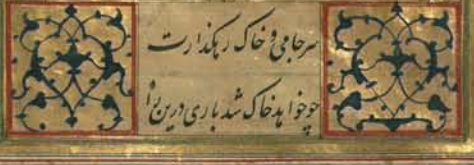 سر جامی و خاک رهگذارت
چو خواهد خاک شد باری درین راه